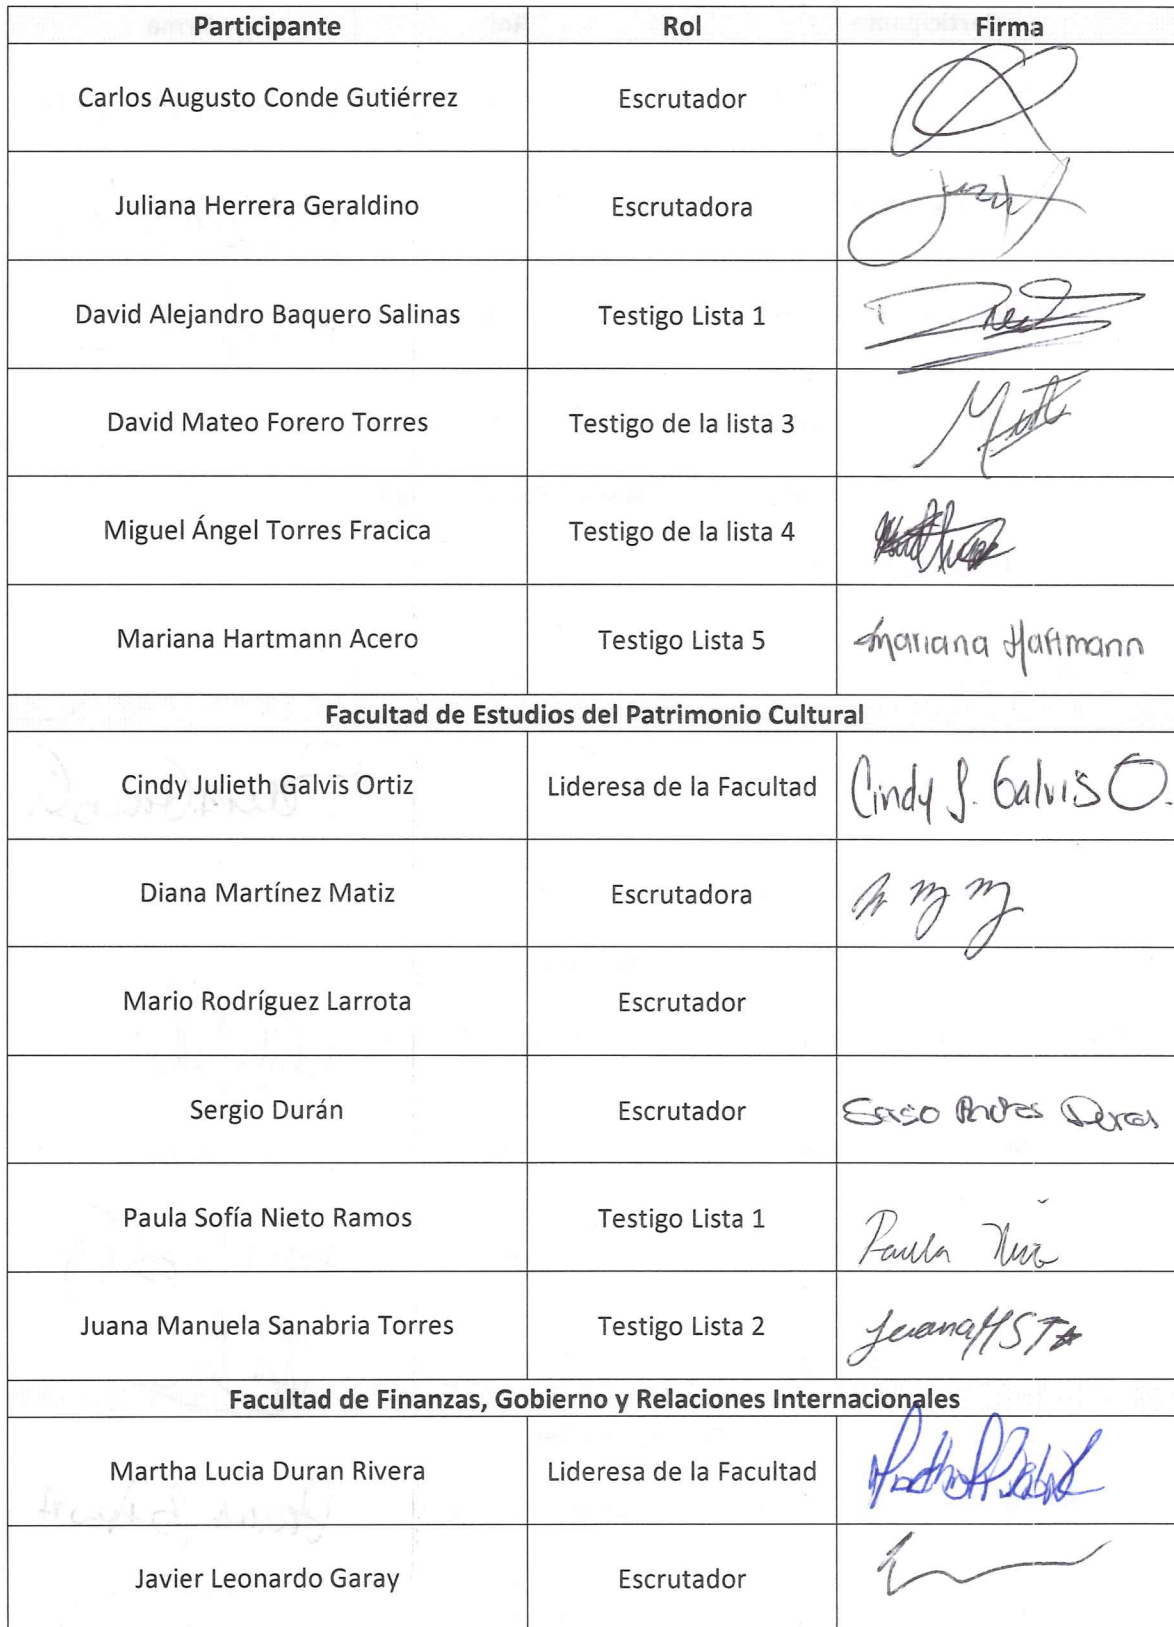 Participante Rol Firma
Carlos Augusto Conde Gutiérrez Escrutador
Juliana Herrera Geraldino Escrutadora
David Alejandro Baquero Salinas Testigo Lista 1
David Mateo Forero Torres Testigo de la lista 3
Miguel Ángel Torres Fracica Testigo de la lista 4
Mariana Hartmann Acero Testigo Lista 5 Mariana Hartmann
Facultad de Estudios del Patrimonio Cultural
Cindy Julieth Galvis Ortiz Lideresa de la Facultad Cindy J. Galvis O.
Diana Martínez Matiz Escrutadora
Mario Rodríguez Larrota Escrutador
Sergio Durán Escrutador
Paula Sofía Nieto Ramos Testigo Lista 1 Paula
Juana Manuela Sanabria Torres Testigo Lista 2 JuanaMST
Facultad de Finanzas, Gobierno y Relaciones Internacionales
Martha Lucia Duran Rivera Lideresa de la Facultad
Javier Leonardo Garay Escrutador